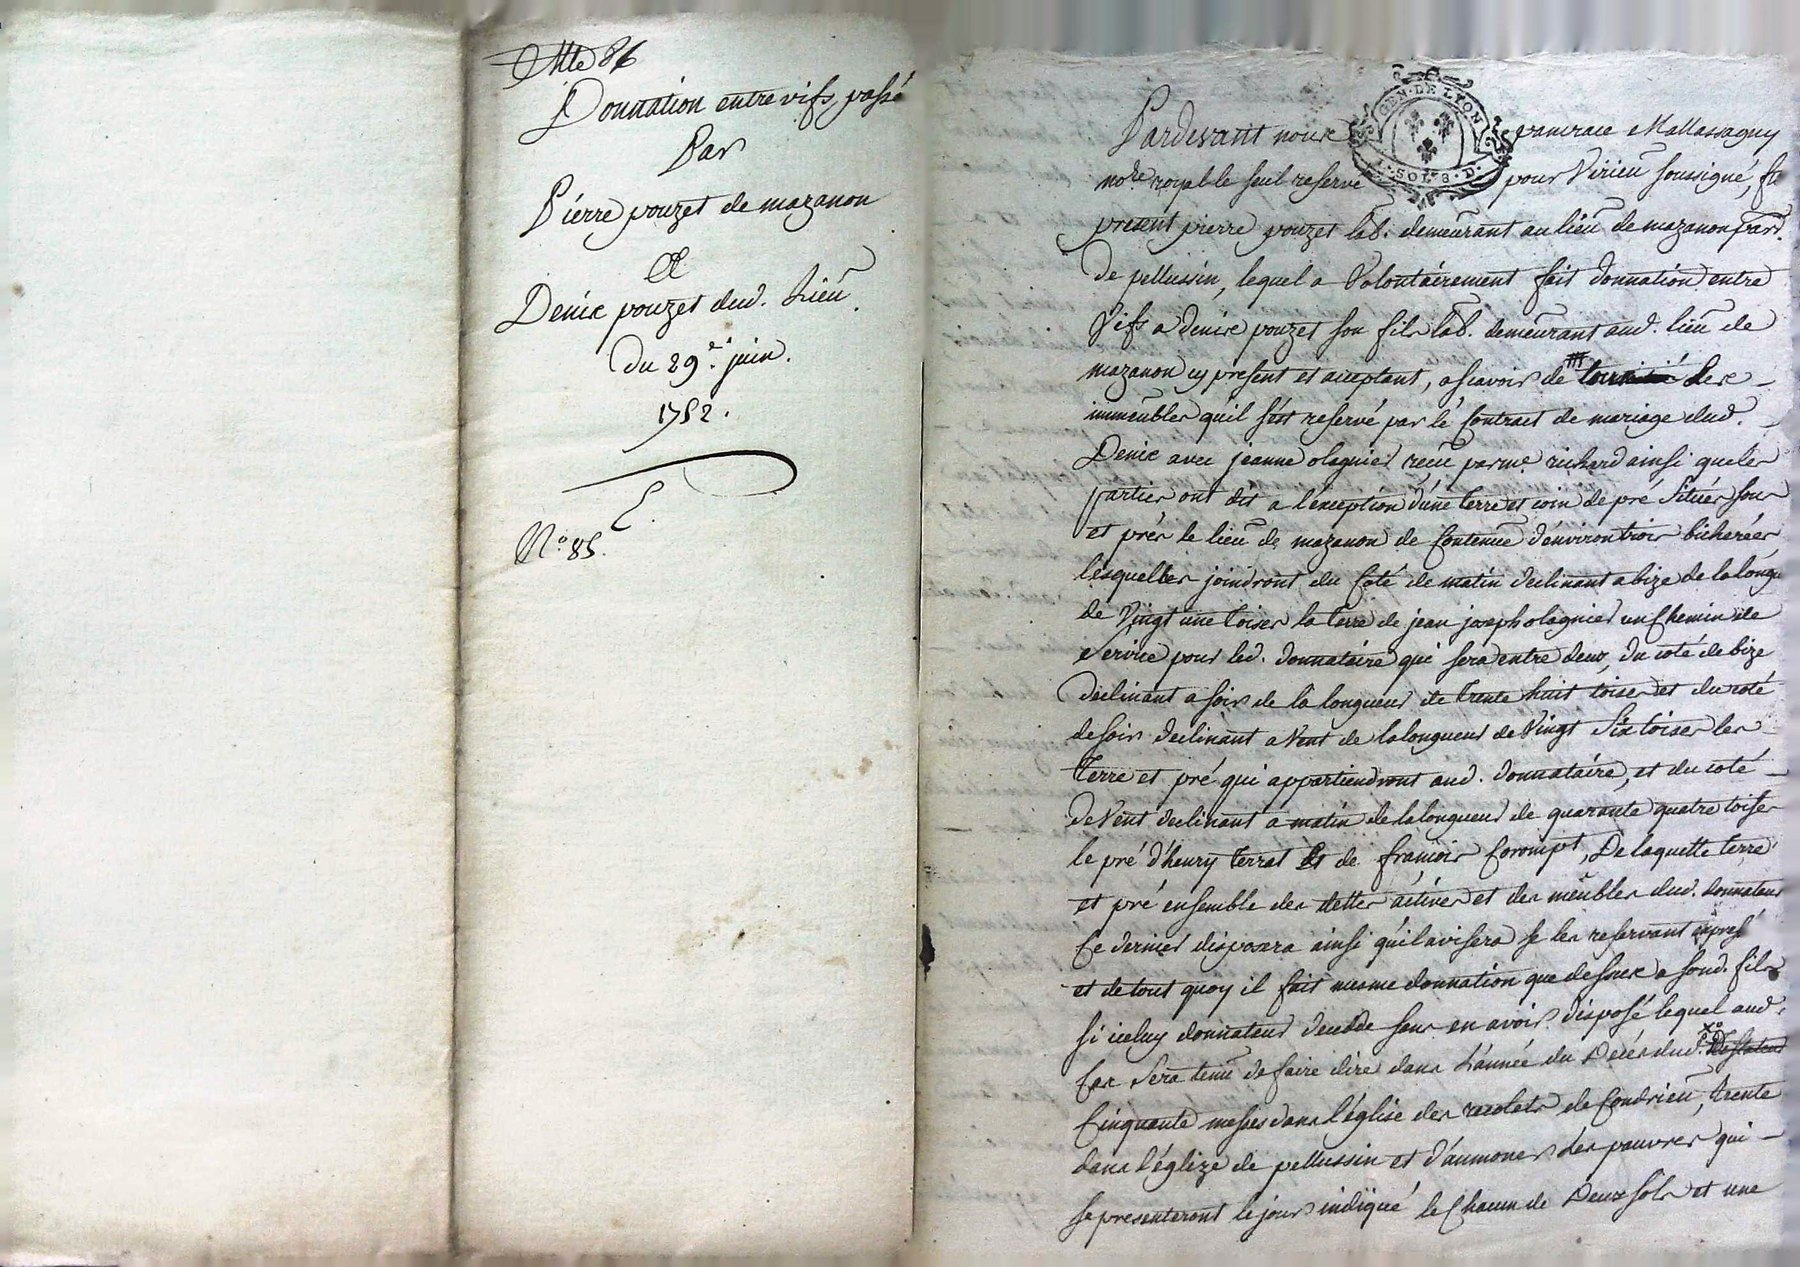 Donnation entre vifs, passé
Par
Pierre pouzet de mazanon
Et
Denis pouzet dud. Lieu.
Du 29.e juin.
1752.
N.o 85.
GEN. DE LYON
1. SOL. 8. D.
Pardevant nous pancrace Mallassagny
no.re royal le seul reservé pour Virieu soussigné, fu
present pierre pouzet lab. demeurant au lieu de mazanon par.
de pellussin, lequel a Volontairement fait donnation entre
Vifs a denis pouzet son fils lab. demeurant aud. lieu de
mazanon cy present et acceptant, a scavoir de des
immeubles qu'il s'est reservé par le Contract de mariage dud.
Denis avec jeanne olagnier reçu par me. richard ainsi que les
parties ont dit a l'exception d'une terre et coin de pré Situés sous
et prés le lieu de mazanon de Contenue d'environ trois bicherées
lesquelles joindront du Coté de matin declinant a bize de la longu
de Vingt une toises la terre de jean joseph olagnier un Chemin de
Service pour led. donnataire qui sera entre deux, du coté de bize
declinant a soir de la longueur de trente huit toises et du coté
de soir declinant a Vent de la longueur de Vingt Six toises les
terre et pré qui appartiendront aud. donnataire, et du coté
de Vent declinant a matin de la longueur de quarante quatre toises
le pré d'henry terrat Et de françois Corompt, De laquelle terre
et pré ensemble des dettes actives et des meubles dud. donnateur
Ce dernier disposera ainsi qu'il avisera se les reservant
et de tout quoy il fait mesme donnation que dessus a sond. fils
si iceluy donnateur decedde sans en avoir disposé lequel aud.
Cas Sera tenu de faire dire dans L'année du Décés dud.
Cinquante messes dans l'église des recolets de Condrieu, trente
dans l'églize de pellussin et d'aumoner des pauvres qui
se presenteront le jour indiqué le Chacun de Deux sols et une